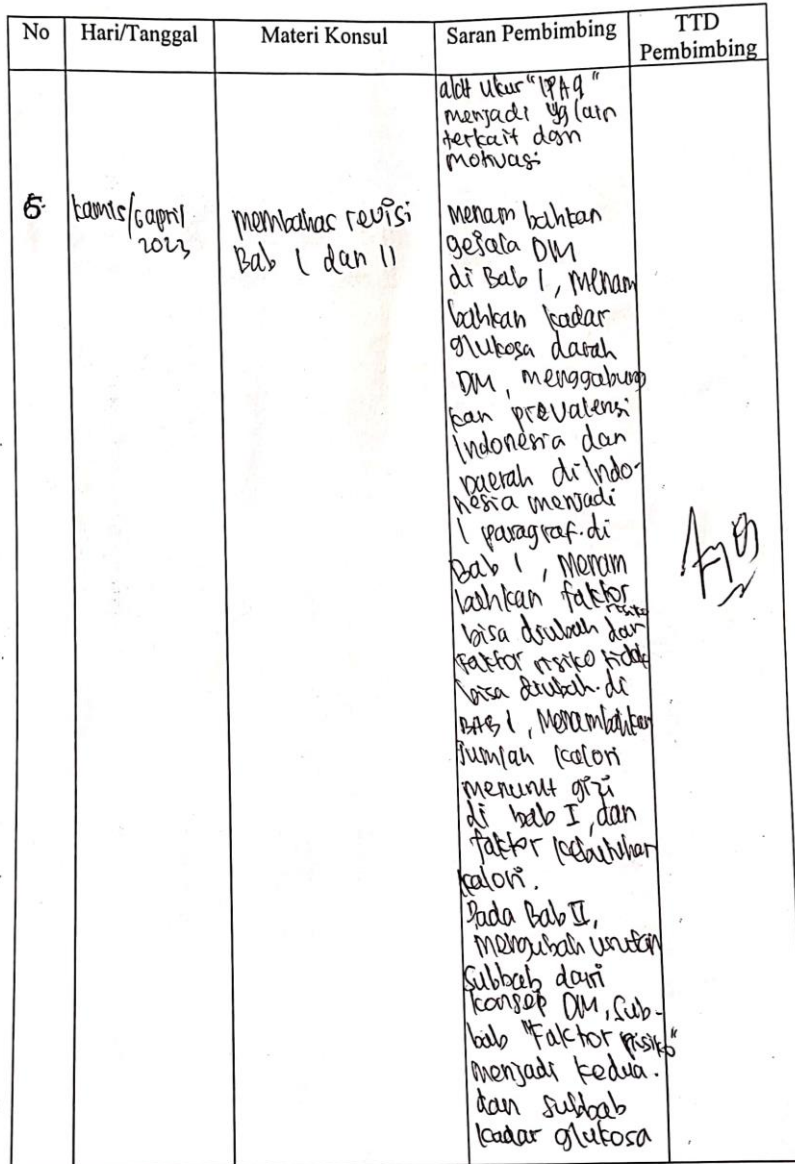 No Hari/Tanggal Materi Konsul Saran Pembimbing TTD Pembimbing
alat ukur "IPAQ"
menjadi yg lain
terkait dgn
motivasi
5. kamis/6 april
2023
membahas revisi
Bab I dan II
Menambahkan
gejala DM
di Bab I, Menam
bahkan kadar
glukosa darah
DM, menggabung
kan prevalensi
Indonesia dan
Daerah di Indo-
nesia menjadi
1 paragraf. di
Bab I, Menam
bahkan faktor risiko
bisa diubah dan
Faktor risiko tidak
bisa diubah. di
BAB I, Menambahkan
Jumlah kalori
menurut gizi
di bab I, dan
faktor kebutuhan
kalori.
Pada Bab II,
mengubah urutan
Subbab dari
konsep DM, Sub-
bab "Faktor Risiko"
menjadi kedua.
dan subbab
kadar glukosa